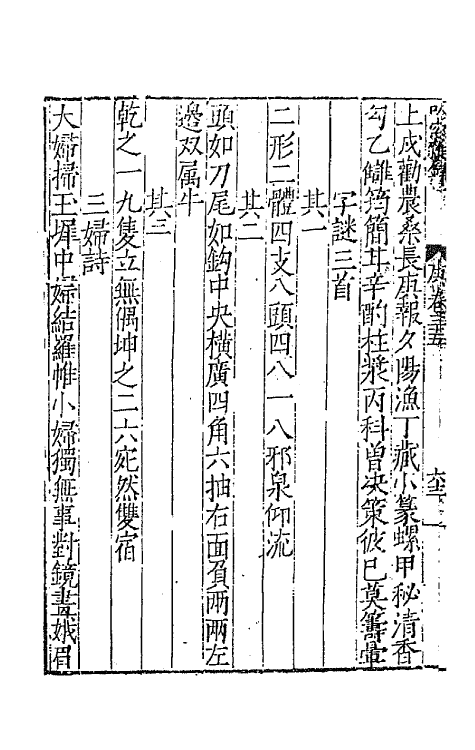 卷三十五
上成勸農桑長庚報夕陽漁丁藏小篆螺甲秘清香
勾乙讎筠簡廿辛酌桂漿丙科曾决策彼巳莫籌量
字謎三首
其一
二形二體四支八頭四八一八邪泉仰流
其二
頭如刀尾如鈎中央橫廣四角六抽右面負兩兩左
邊双属牛
其三
乾之一九隻立無偶坤之二六宛然雙宿
三婦詩
大婦掃玉墀中婦結羅帷小婦獨無事對鏡畫娥眉